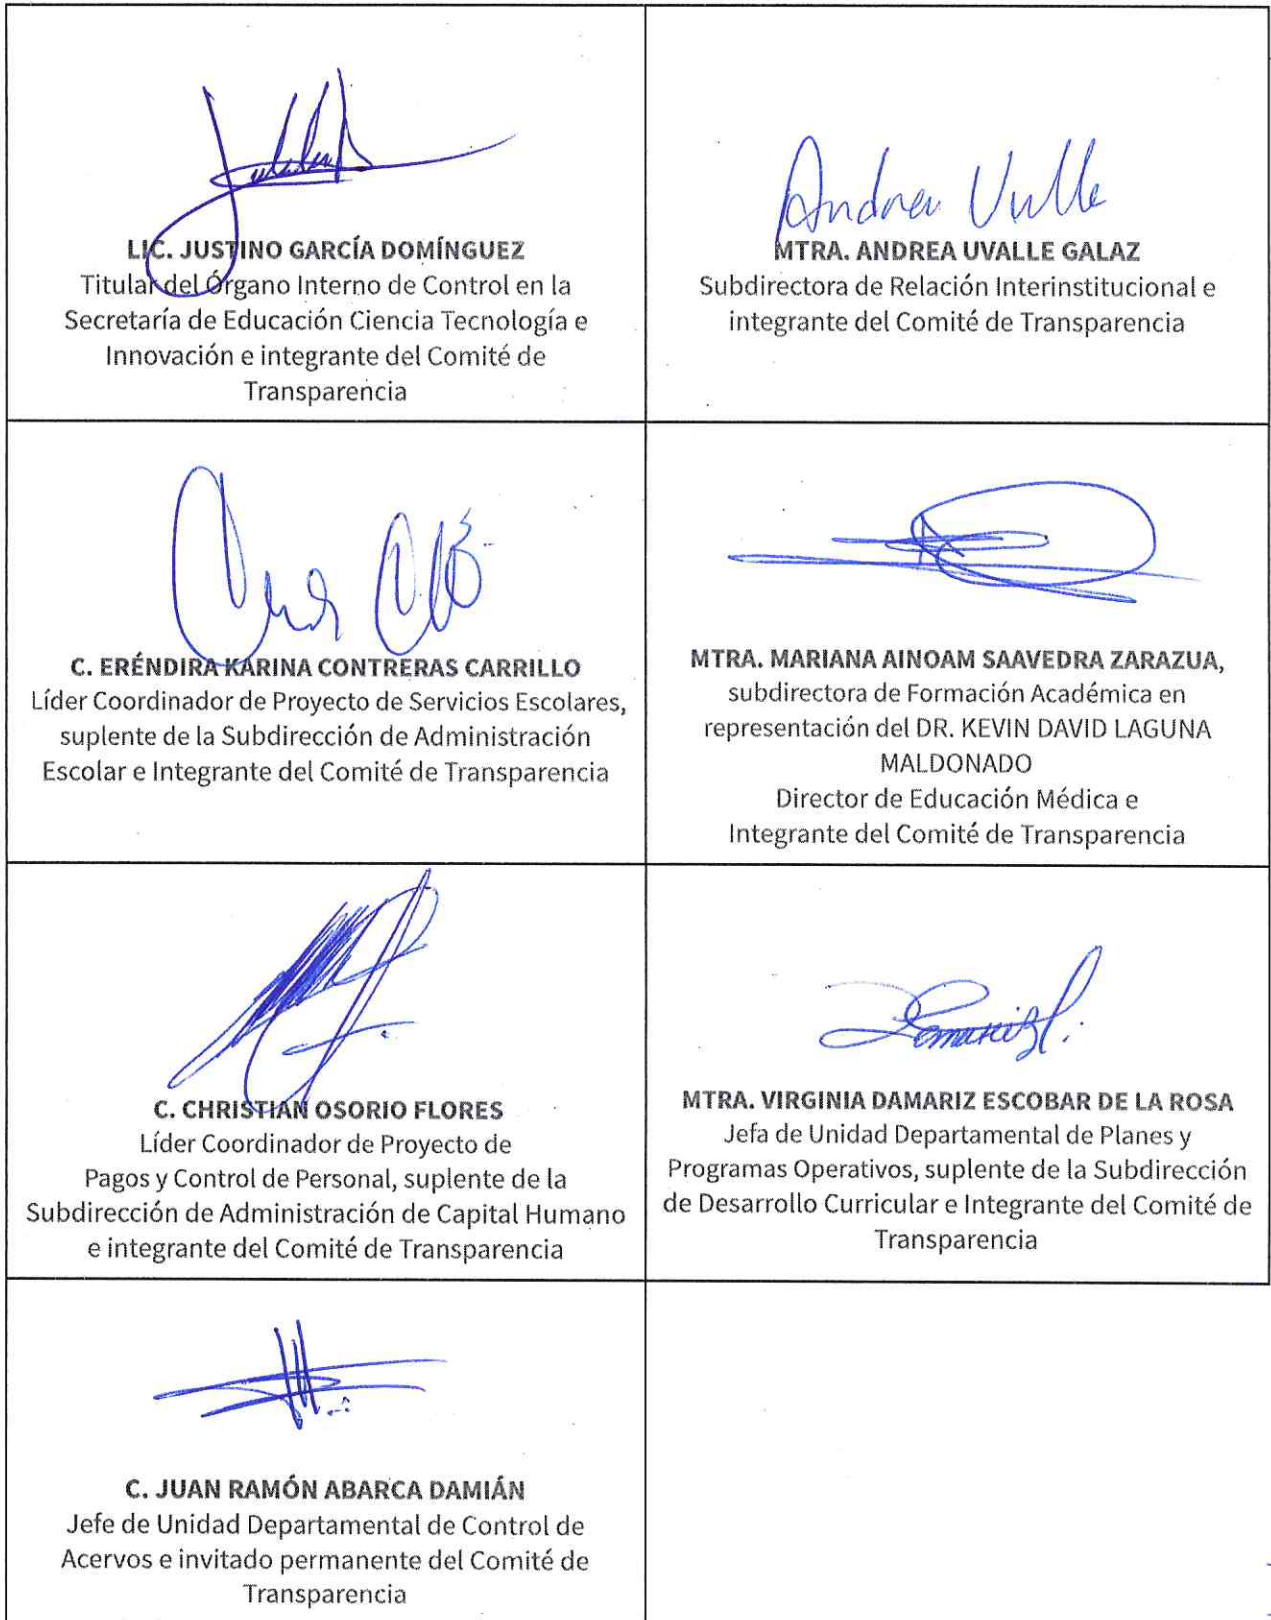 LIC. JUSTINO GARCÍA DOMÍNGUEZ
Titular del Órgano Interno de Control en la
Secretaría de Educación Ciencia Tecnología e
Innovación e integrante del Comité de
Transparencia
Andrea Uvalle
MTRA. ANDREA UVALLE GALAZ
Subdirectora de Relación Interinstitucional e
integrante del Comité de Transparencia
C. ERÉNDIRA KARINA CONTRERAS CARRILLO
Líder Coordinador de Proyecto de Servicios Escolares,
suplente de la Subdirección de Administración
Escolar e Integrante del Comité de Transparencia
MTRA. MARIANA AINOAM SAAVEDRA ZARAZUA,
subdirectora de Formación Académica en
representación del DR. KEVIN DAVID LAGUNA
MALDONADO
Director de Educación Médica e
Integrante del Comité de Transparencia
C. CHRISTIAN OSORIO FLORES
Líder Coordinador de Proyecto de
Pagos y Control de Personal, suplente de la
Subdirección de Administración de Capital Humano
e integrante del Comité de Transparencia
MTRA. VIRGINIA DAMARIZ ESCOBAR DE LA ROSA
Jefa de Unidad Departamental de Planes y
Programas Operativos, suplente de la Subdirección
de Desarrollo Curricular e Integrante del Comité de
Transparencia
C. JUAN RAMÓN ABARCA DAMIÁN
Jefe de Unidad Departamental de Control de
Acervos e invitado permanente del Comité de
Transparencia